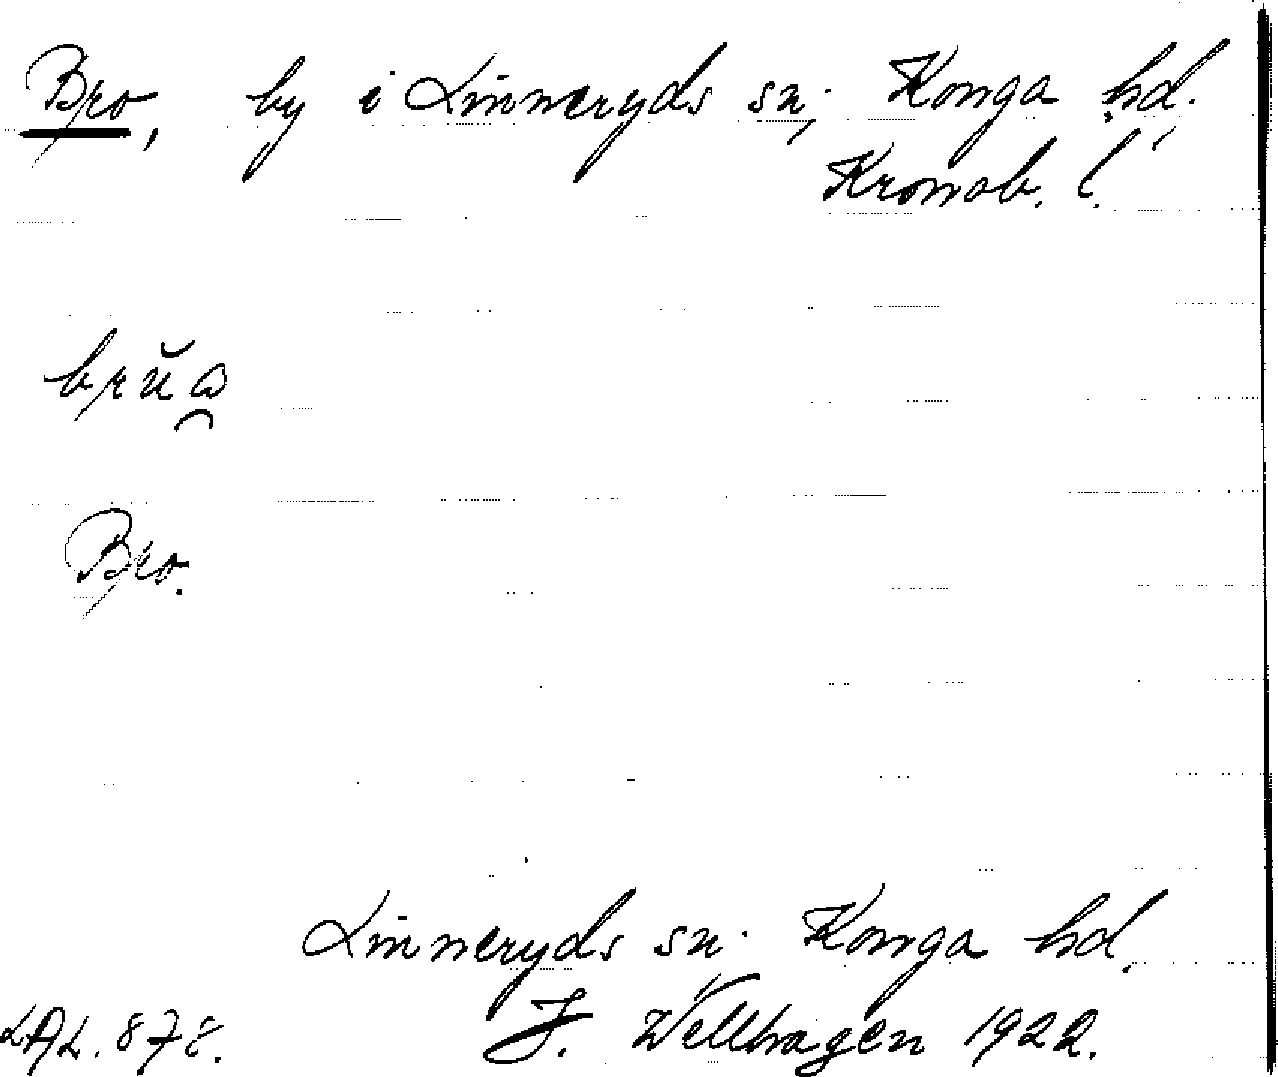 Bro, by i Linneryds sn; Konga hd.,
Kronob. l.
Bro.
Linneryds sn. Konga hd.
J. Wellhagen 1922.